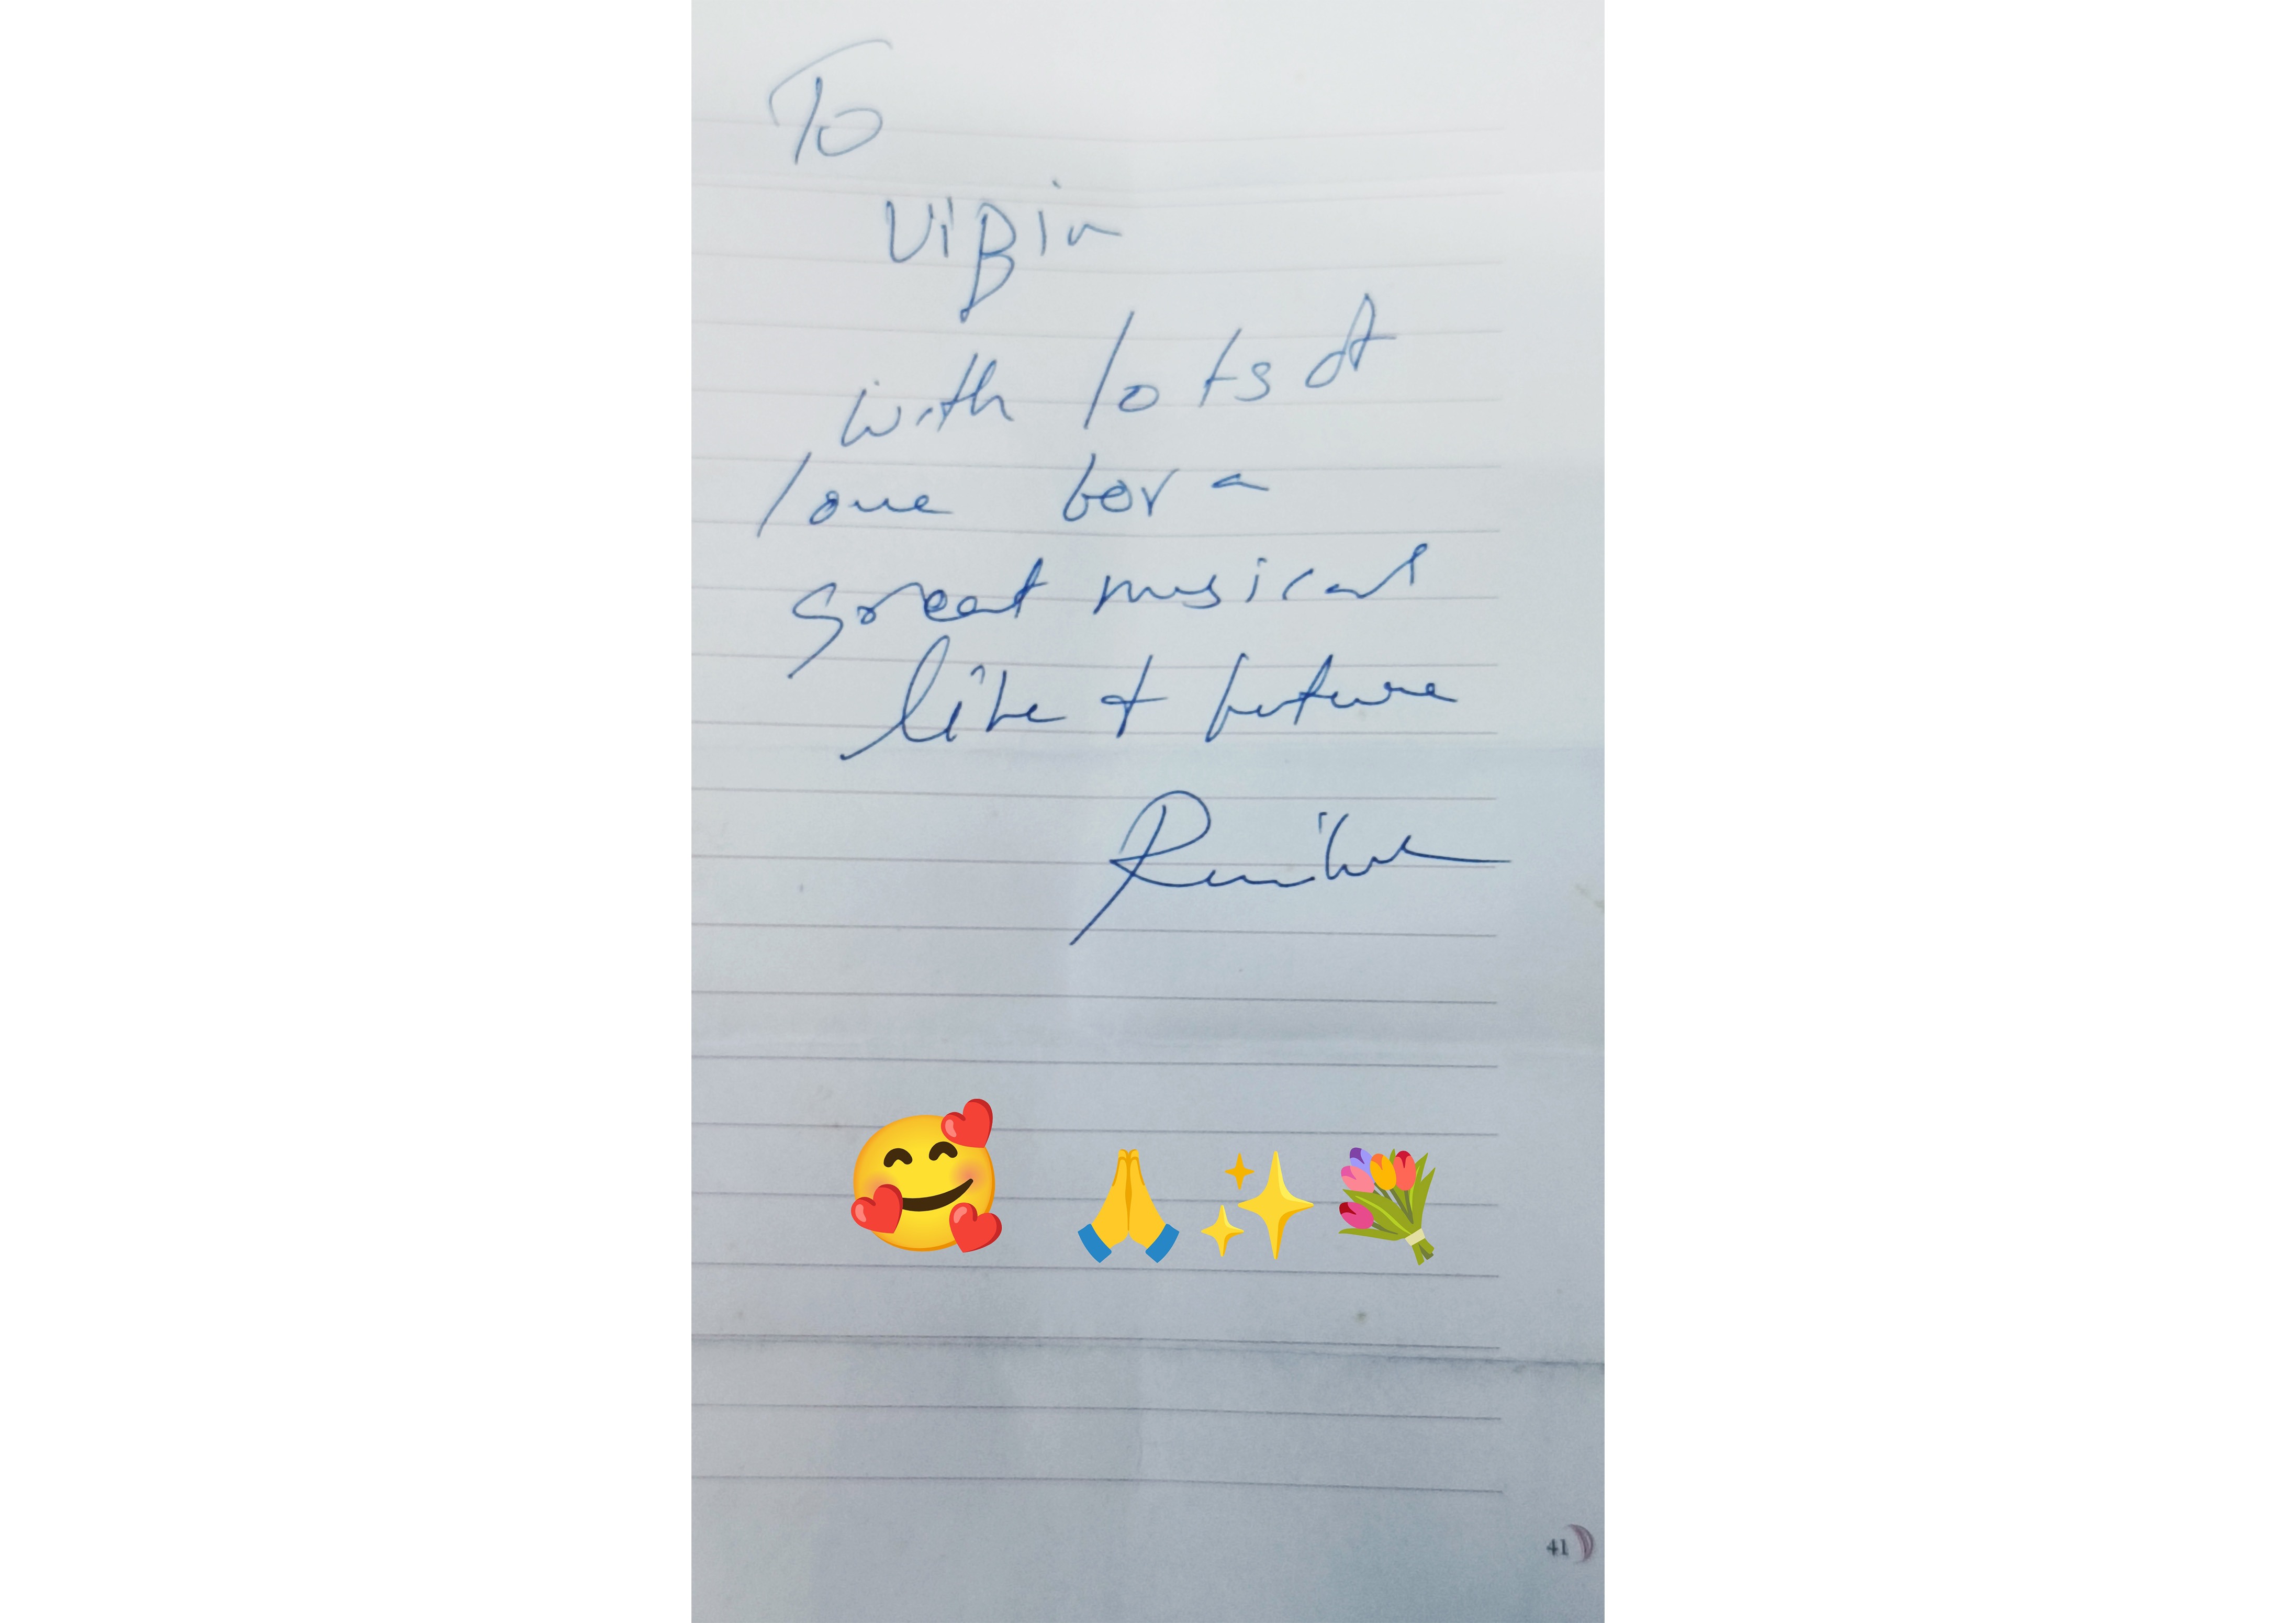 To
ViBin
with lots of
love for a
great musical
life & future
41